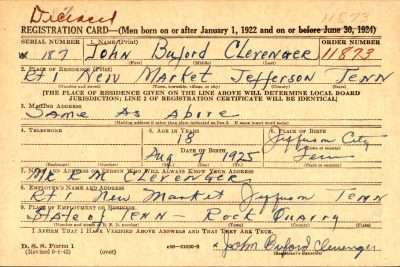 Deceased
REGISTRATION CARD—(Men born on or after January 1, 1922 and on or before June 30, 1924)
SERIAL NUMBER 1. NAME (Print) ORDER NUMBER
W 187 John Buford Clevenger 11873
(First) (Middle) (Last)
2. PLACE OF RESIDENCE (Print)
Rt 1 New Market Jefferson Tenn
(Number and street) (Town, township, village, or city) (County) (State)
[THE PLACE OF RESIDENCE GIVEN ON THE LINE ABOVE WILL DETERMINE LOCAL BOARD
JURISDICTION; LINE 2 OF REGISTRATION CERTIFICATE WILL BE IDENTICAL]
3. MAILING ADDRESS
Same As Above
(Mailing address if other than place indicated on line 2. If same insert word same)
4. TELEPHONE 5. AGE IN YEARS 6. PLACE OF BIRTH
18 Jefferson City
DATE OF BIRTH (Town or county)
Aug 7 1925 Tenn
(Mo.) (Day) (Yr.) (State or country)
7. NAME AND ADDRESS OF PERSON WHO WILL ALWAYS KNOW YOUR ADDRESS
Clevenger
8. EMPLOYER'S NAME AND ADDRESS
Rt 1 New Market Jefferson Tenn
9. PLACE OF EMPLOYMENT OR BUSINESS
State of Tenn - Rock Quarry
(Number and street or R. F. D. number) (Town) (County) (State)
I AFFIRM THAT I HAVE VERIFIED ABOVE ANSWERS AND THAT THEY ARE TRUE.
D. S. S. Form 1
(Revised 6-1-43) (over) 16—21630-2 John Buford Clevenger